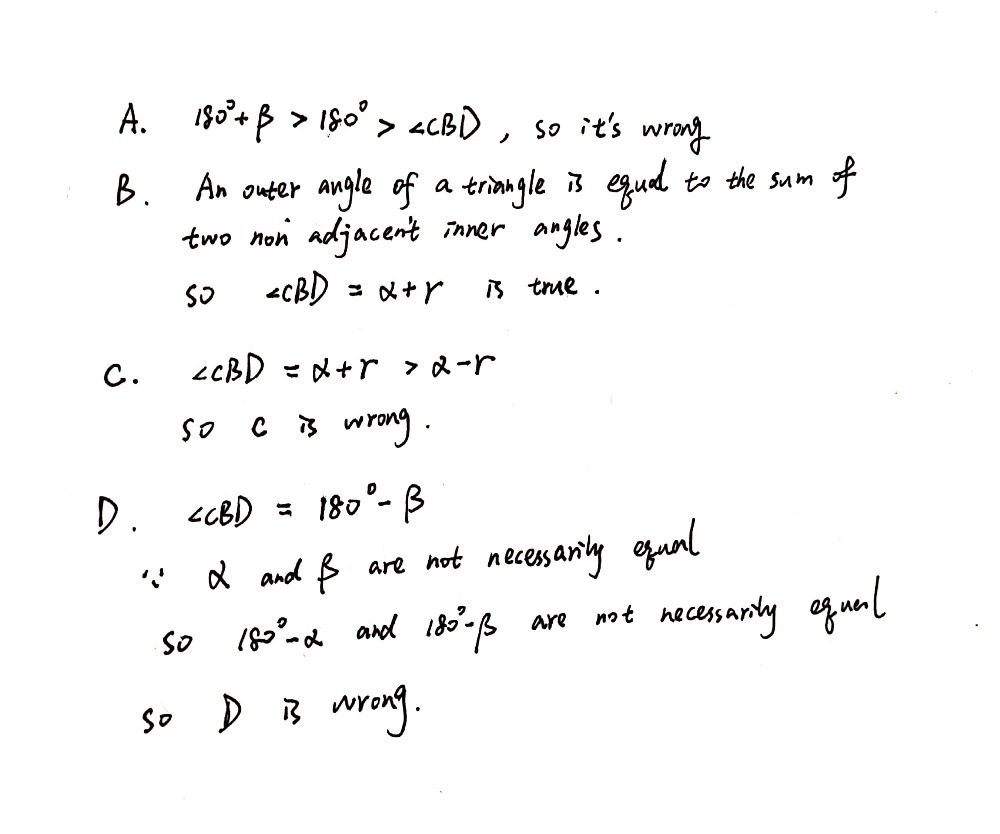 A. 180°+β > 180° > ∠CBD, so it's wrong
B. An outer angle of a triangle is equal to the sum of
two non adjacent inner angles.
so ∠CBD = α+γ is true.
C. ∠CBD = α+γ > α-γ
so C is wrong.
D. ∠CBD = 180°-β
∵ α and β are not necessarily equal
so 180°-α and 180°-β are not necessarily equal
so D is wrong.